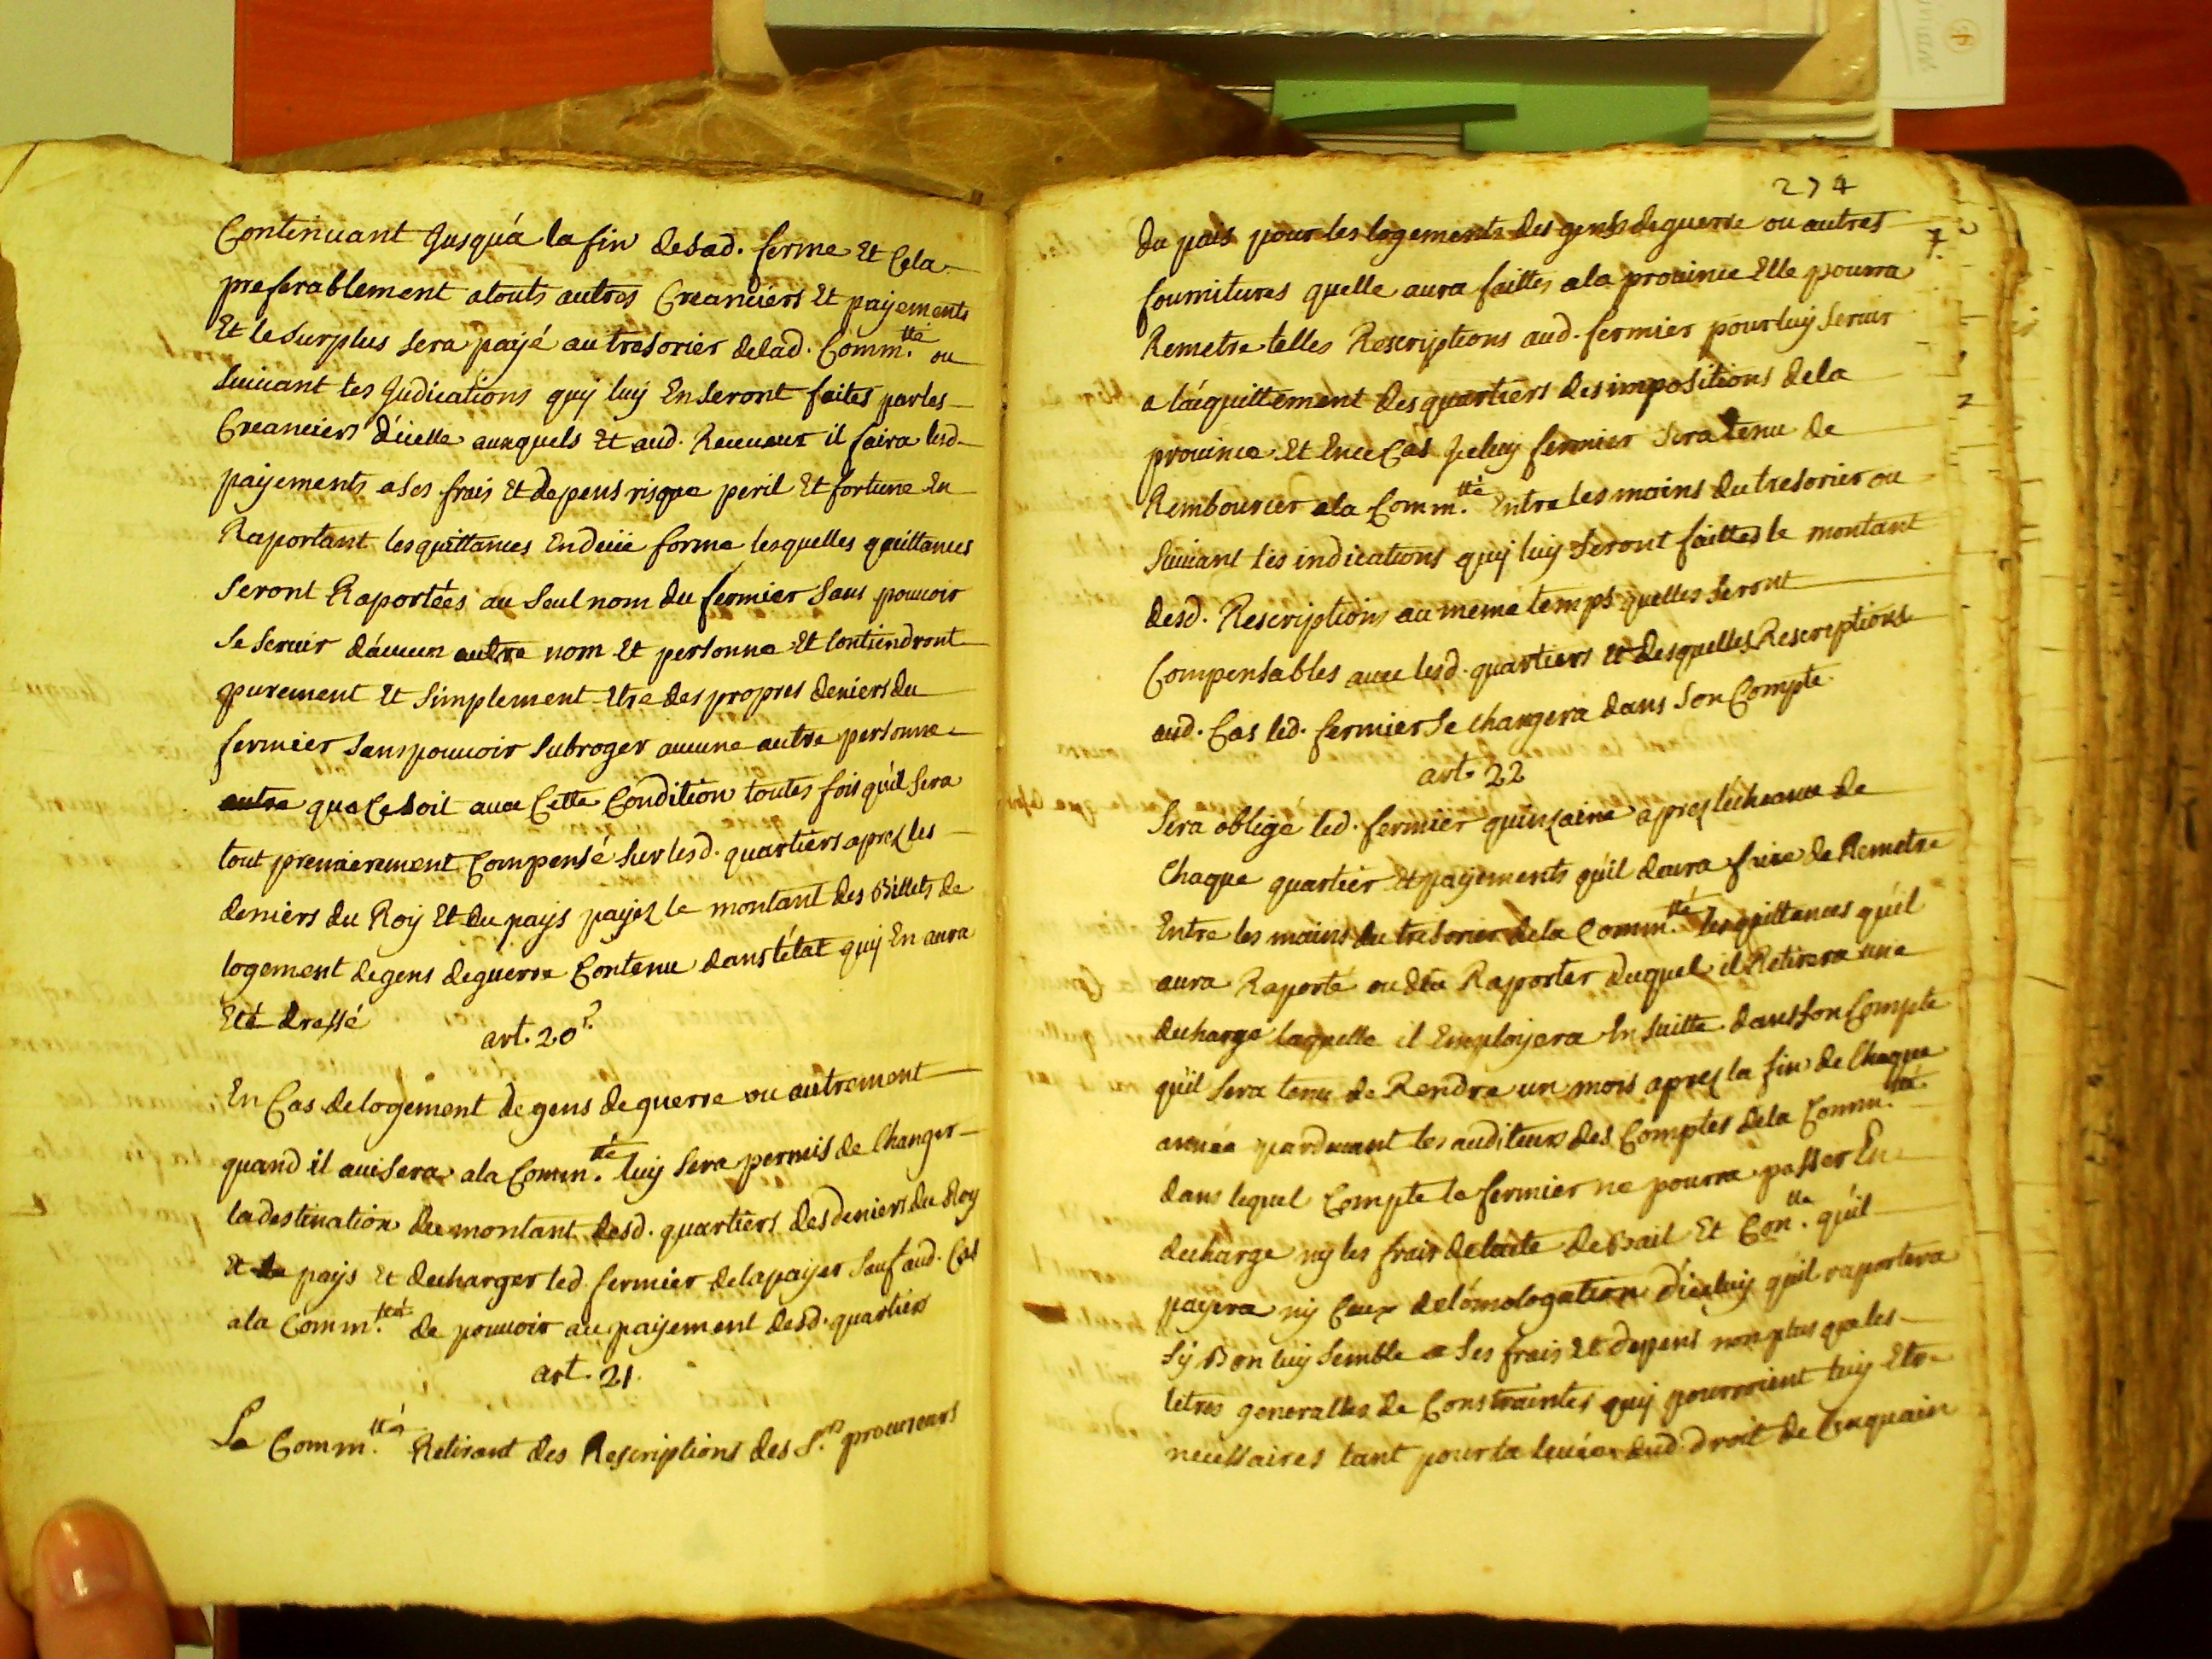 Continuant Jusquá la fin desad. ferme Et Cela
preferablement atouts autres Creanciers Et payements
Et le surplus sera payé au tresorier delad. Comm.tté ou
suiuant les Judications quy luy Enseront faites parles
Creanciers d'icelle auxquels Et aud. Receueur il faira lesd.
payements ases frais Et depens risque peril Et fortune En
Raportant les quittances Endeüe forme lesquelles quittances
seront Raportées au seul nom du fermier sans pouuoir
se seruir dáucun autre nom Et personne Et Contiendront
purement Et simplement Etre des propres deniers du
fermier sans pouuoir subroger aucune autre personne
autre que Cesoit auec Cette Condition toutes fois qu'il sera
tout premierement Compensé sur lesd. quartiers aprez les
deniers du Roy Et du pays payez le montant des Billets de
logement degens deguerre Contenu dans l'état quy En aura
Eté dressé
art. 20
En Cas delogement de gens de guerre ou autrement
quand il auisera ala Comm.té luy sera permis de Changer
la destination du montant desd. quartiers des deniers du Roy
Et de pays Et decharger led. fermier delapayer sauf aud. Cas
ala Comm.té de pouuoir au payement desd. quartiers
art. 21.
La Comm.tté Retirant des Rescriptions des S.rs procureurs
274
du païs pour les logements des gens deguerre ou autres
fournitures quelle aura faittes ala prouince Elle pourra
Remetre telles Rescriptions aud. fermier pour luy seruir
a l'aquittement des quartiers des impositions dela
prouince Et Ence Cas Jceluy fermier sera tenu de
Rembourcer ala Comm.tté Entre les mains du tresorier ou
suiuant les indications quy luy seront faittes le montant
desd. Rescriptions au meme temps quelles seront
Compensables auec lesd. quartiers Et desquelles Rescriptions
aud. Cas led. fermier se chargera dans son Compte
art. 22
Sera obligé led. fermier quinzaine aprez lécheance de
Chaque quartier Et payements qu'il deura faire de Remetre
Entre les mains du tresorier dela Comm.té les quittances qu'il
aura Raporté ou deu Raporter duquel il Retirera une
decharge laquelle il Employera En suitte dans son Compte
qu'il sera tenu de Rendre un mois aprez la fin de Chaque
année pardeuant les auditeurs des Comptes dela Comm.té
dans lequel Compte le fermier ne pourra passer En
decharge ny les frais delacte de Bail Et Con.lle qu'il
payera ny Ceux delómologation d'iceluy qu'il raportera
sy Bon luy semble a ses frais Et depens nonplus que les
letres generalles de Constraintes quy pourroient luy Etre
necessaires tant pour la leuée dud. droit de Cinquain